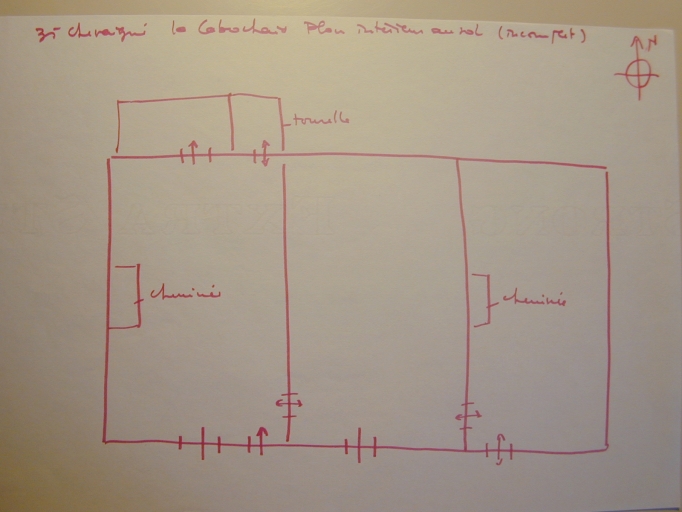 35 Chevaigné la Cabochais Plan intérieur au sol (incomplet)
N
tourelle
cheminée
cheminée